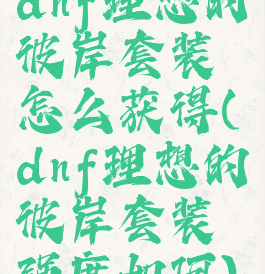 dnf理想的
彼岸套装
怎么获得(
dnf理想的
彼岸套装
强度如何)